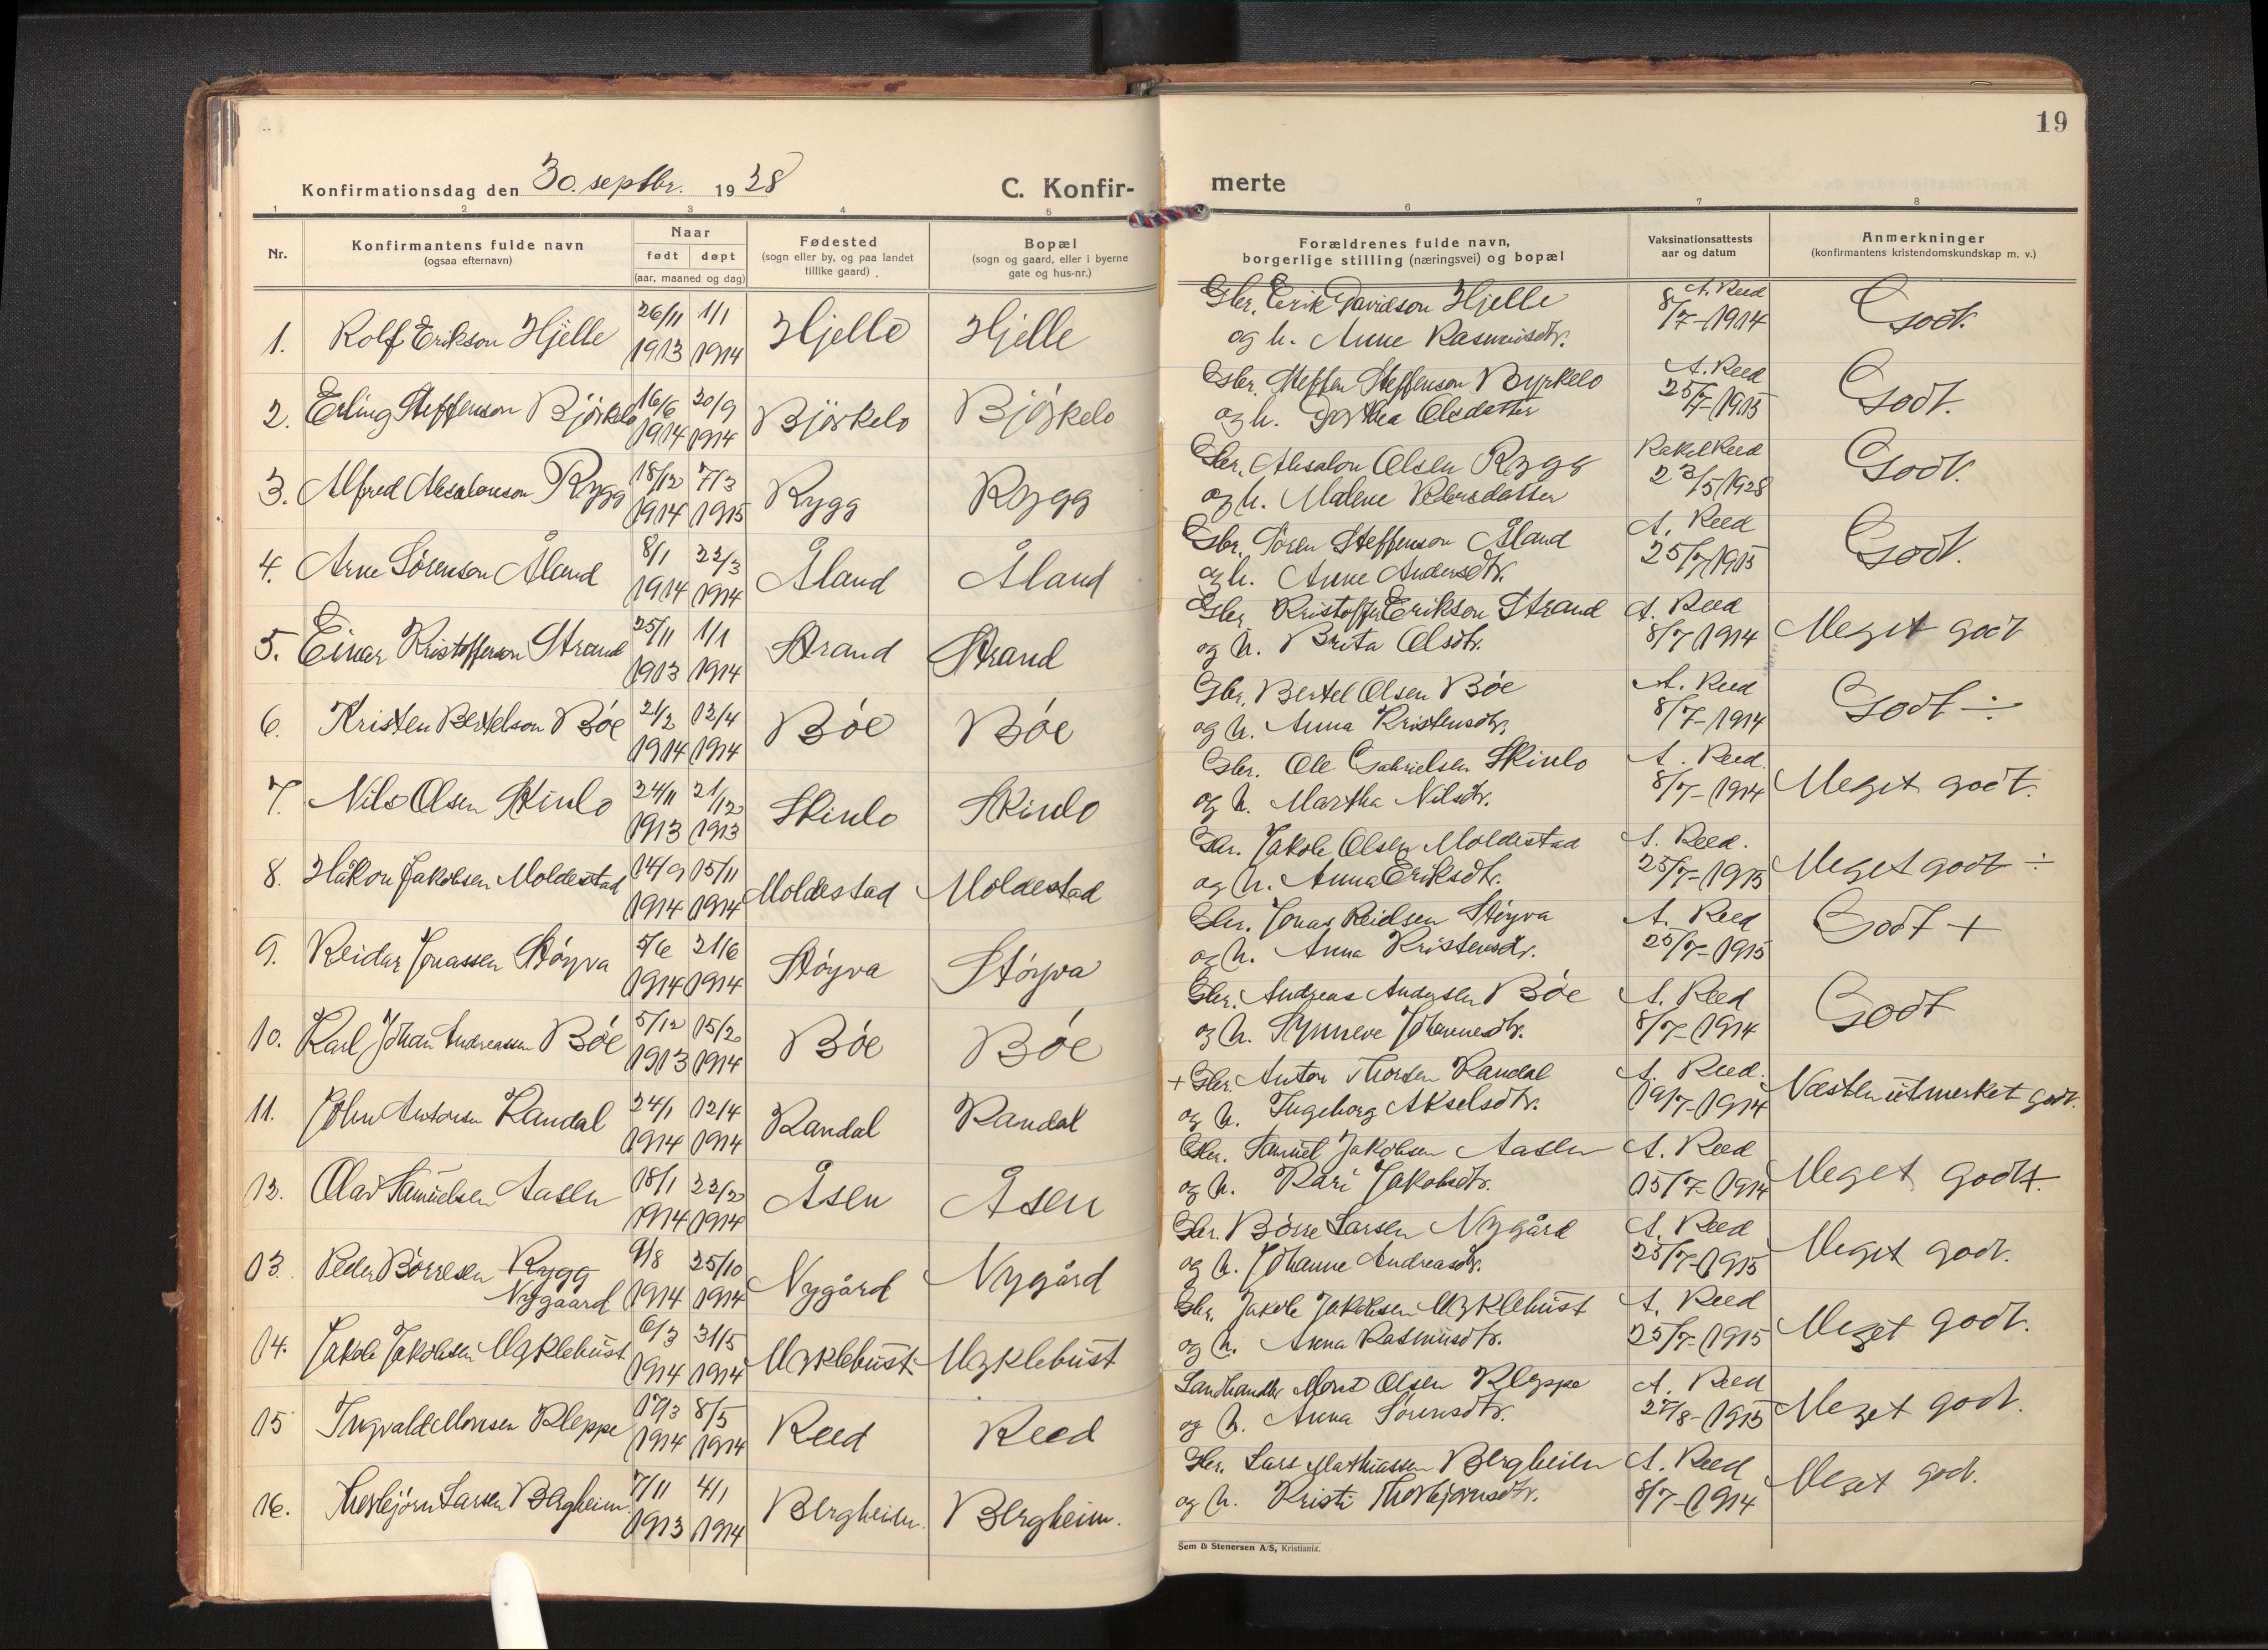 19
Konfirmationsdag den 30. septbr. 1928
C. Konfir- merte
1 2 3 4 5 6 7 8
Nr.
Konfirmantens fulde navn
(ogsaa efternavn)
Naar
født døpt
(aar, maaned og dag)
Fødested
(sogn eller by, og paa landet
tillike gaard)
Bopæl
(sogn og gaard, eller i byerne
gate og hus-nr.)
Forældrenes fulde navn,
borgerlige stilling (næringsvei) og bopæl
Vaksinationsattests
aar og datum
Anmerkninger
(konfirmantens kristendomskundskap m. v.)
1. Rolf Erikson Hjelle 26/11 1913 1/1 1914 Hjelle Hjelle Gbr. Erik Davidson Hjelle A. Reed Godt.
og h. Anne Rasmusdtr. 8/7-1914
2. Erling Steffenson Bjørkelo 16/6 1914 20/9 1914 Bjørkelo Bjørkelo Gbr. Steffen Steffenson Byrkelo A. Reed Godt.
og h. Dorthea Olsdatter 25/7-1915
3. Alfred Absalonson Rygg 18/12 1914 7/3 1915 Rygg Rygg Gbr. Absalon Olsen Rygg Rakel Reed Godt.
og h. Malene Pedersdatter 23/5 1928
4. Arne Sørenson Åland 8/1 1914 22/3 1914 Åland Åland Gbr. Søren Steffenson Åland A. Reed Godt.
og h. Anne Andersdtr. 25/7 1915
5. Einar Kristofferson Strand 25/11 1913 1/1 1914 Strand Strand Gbr. Kristoffer Erikson Strand A. Reed Meget godt
og h. Brita Olsdtr. 8/7 1914
6. Kristen Bertelson Bøe 21/2 1914 12/4 1914 Bøe Bøe Gbr. Bertel Olsen Bøe A. Reed Godt ÷
og h. Anna Kristensdtr. 8/7-1914
7. Nils Olsen Skinlo 24/11 1913 21/12 1913 Skinlo Skinlo Gbr. Ole Gabrielsen Skinlo A. Reed. Meget godt.
og h. Martha Nilsdtr. 8/7-1914
8. Håkon Jakobsen Moldestad 14/9 1914 15/11 1914 Moldestad Moldestad Gbr. Jakob Olsen Moldestad A. Reed. Meget godt ÷
og h. Anna Eriksdtr. 25/7-1915
9. Reidar Jonassen Støyva 5/6 1914 21/6 1914 Støyva Støyva Gbr. Jonas Reidsen Støyva A. Reed Godt +
og h. Anna Kristensdtr. 25/7-1915
10. Karl Johan Andreassen Bøe 5/12 1913 15/2 1914 Bøe Bøe Gbr. Andreas Andersen Bøe A. Reed Godt
og h. Synneve Johannesdtr. 8/7-1914
11. John Antonsen Randal 24/1 1914 12/4 1914 Randal Randal + Gbr. Anton Thorsen Randal A. Reed. Næsten utmerket godt.
og h. Ingeborg Akselsdtr. 19/7-1914
12. Olav Samuelsen Aasen 18/1 1914 22/2 1914 Åsen Åsen Gbr. Samuel Jakobsen Aasen A. Reed Meget godt.
og h. Kari Jakobsdtr. 15/7-1914
13. Peder Børresen Rygg 9/8 1914 25/10 1914 Nygård Nygård Gbr. Børre Larsen Nygård A. Reed Meget godt.
Nygaard og h. Johanne Andreasdtr. 25/7-1915
14. Jakob Jakobsen Myklebust 6/3 1914 31/5 1914 Myklebust Myklebust Gbr. Jakob Jakobsen Myklebust A. Reed Meget godt.
og h. Anna Rasmusdtr. 25/7-1915
15 Ingvald Monsen Kleppe 17/3 1914 8/5 1914 Reed Reed Landhandler Mons Olsen Kleppe A. Reed Meget godt.
og h. Anna Sørensdtr. 27/8-1915
16. Thorbjørn Larsen Bergheim 7/11 1913 4/1 1914 Bergheim. Bergheim. Gbr. Lars Mathiassen Bergheim A. Reed Meget godt.
og h. Kristi Thorbjørnsdtr. 8/7-1914
Sem & Stenersen A/S, Kristiania.